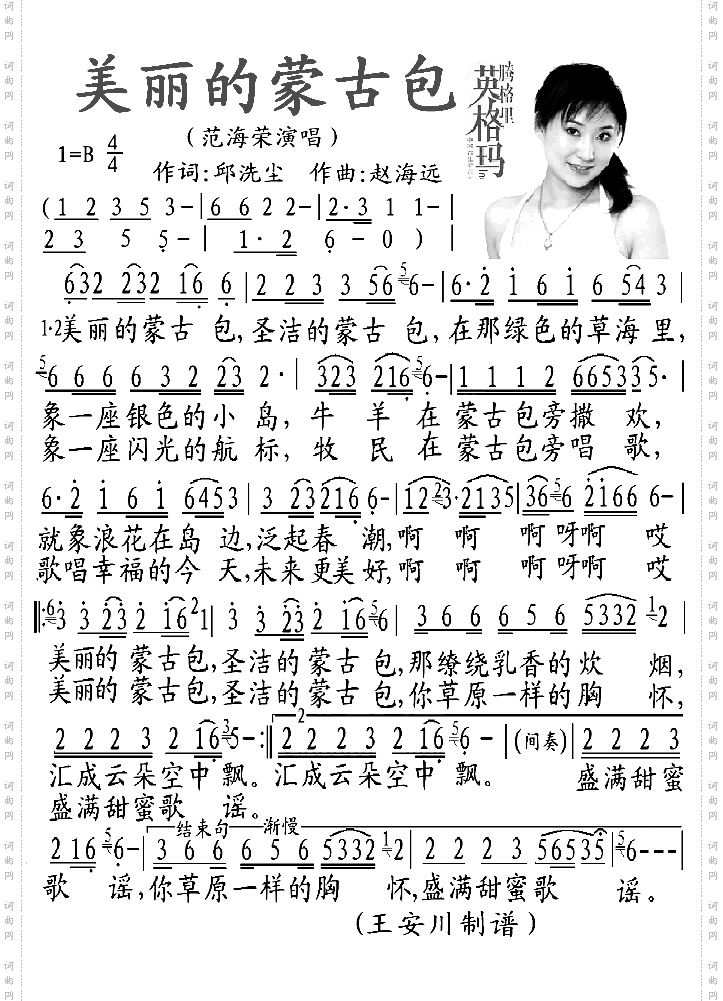 美丽的蒙古包
腾格里
英格玛
(范海荣演唱)
1=B 4/4
作词:邱洗尘 作曲:赵海远
(1 2 3 5 3-|6 6 2 2-|2·3 1 1-|
2 3 5 5-|1·2 6-0)
632 232 216 6|2 2 3 3 56 5 6-|6·2 1 6 1 6 54 3|
1·2美丽的蒙古 包,圣洁的蒙古 包,在那绿色的草海 里,
5 6 6 6 6 3 2 23 2·|323 216 5 6-|1 1 1 2 66533 35·
象一座银色的小 岛, 牛 羊 在 蒙古包旁撒 欢,
象一座闪光的航 标, 牧 民 在 蒙古包旁唱 歌,
6·2 1 6 1 6453|3 23216 6-|12 23 3·2135|36 5 6 2166 6-|
就象浪花在岛 边,泛起春 潮,啊 啊 啊 呀啊 哎
歌唱幸福的今 天,未来更美好,啊 啊 啊 呀啊 哎
‖:6 3 3 23 2 16 2 1|3 3 23 2 16 5 6|3 6 6 6 5 6 5332 1 2|
美丽的 蒙古包,圣洁的蒙古 包,那缭绕乳香的炊 烟,
美丽的 蒙古包,圣洁的蒙古 包,你草原一样的胸 怀,
2 2 2 3 2 16 3 5-:‖2 2 2 2 3 2 16 5 6-|(间奏)|2 2 2 3
汇成云朵空中 飘。汇成云朵空中 飘。 盛满甜蜜
盛满甜蜜歌 谣。
结束句 渐慢
2 16 5 6-|3 6 6 6 5 6 5332 1 2|2 2 2 3 56535 5 6---|
歌 谣,你草原一样的胸 怀,盛满甜蜜歌 谣。
(王安川制谱)